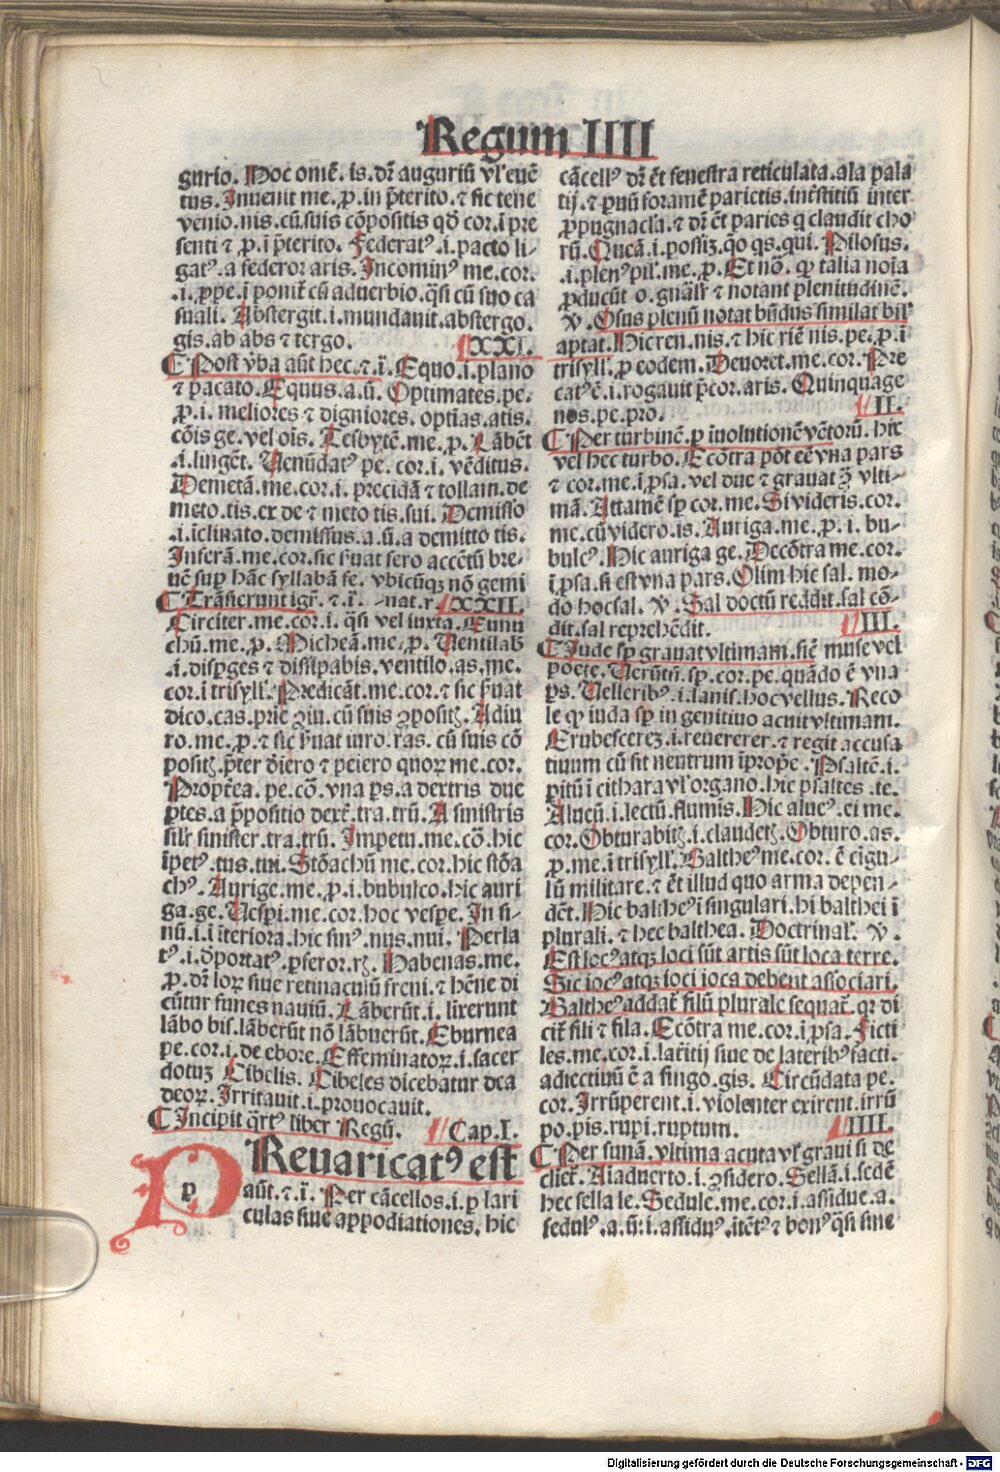 Regum IIII
gurio. Hoc omē. is. dr̄ auguriū vl' euē
tus. Inuenit me. ꝓ. in p̄terito. ⁊ sic tene
venio. nis. cū suis cōpositis qd̄ cor. i pre
senti ⁊ ꝓ. ī p̄terito. Federatꝰ. i. pacto li-
gatꝰ. a federor aris. Incominꝰ me. cor.
. i. ꝓpe. ī ponit̄ cū aduerbio. q̄si cū suo ca
suali. Abstergit. i. mundauit. abstergo.
gis. ab abs ⁊ tergo. XXI.
Post v̄ba aūt hec. ⁊. ī. Equo. i. plano
⁊ pacato. Equus. a. ū. Optimates. pe.
ꝓ. i. meliores ⁊ digniores. optias. atis.
cōis ge. vel ois. Tesbytē. me. ꝓ. Lābēt
. i. lingēt. Uenūdatꝰ pe. cor. i. vēditus.
Demetā. me. cor. i. precidā ⁊ tollam. de
meto. tis. ex de ⁊ meto tis. sui. Demisso
. i. īclinato. demissus. a. ū. a demitto tis.
Inferā. me. cor. sic s̄uat fero accētū bre-
uē sup hāc syllabā fe. vbicūqꝫ nō gemi
Trāsierunt igr̄. ⁊. ī. -nat. r. XXII.
Circiter. me. cor. i. q̄si vel iuxta. Eunu
chū. me. ꝓ. Micheā. me. ꝓ. Uentilab̄
. i. disꝑges ⁊ dissipabis. ventilo. as. me.
cor. ī trisyll'. Predicāt. me. cor. ⁊ sic s̄uat
dico. cas. prīe ꝯiu. cū suis ꝯpositꝭ. Adiu
ro. me. ꝓ. ⁊ sic s̄uat iuro. ras. cū suis cō
positꝭ. p̄ter deiero ⁊ peiero quoꝝ me. cor.
Propt̄ea. pe. cō. vna ꝑs. a dextris due
ꝑtes. a p̄positio dext̄. tra. trū. A sinistris
silr̄ sinister. tra. trū. Impetu. me. cō. hic
īpetꝰ. tus. tui. Stōachū me. cor. hic stōa
chꝰ. Aurige. me. ꝓ. i. bubulco. hic auri
ga. ge. Uesp̄i. me. cor. hoc vespe. In si-
nū. i. ī īteriora. hic sinꝰ. nus. nui. Perla
tꝰ. i. dꝑortatꝰ. ꝑferor. rꝭ. Habenas. me.
ꝓ. dr̄ loꝝ siue retinaculū freni. ⁊ hēne di
cūtur funes nauiū. Lāberūt. i. linxerunt
lābo bis. lāberūt nō lābuerūt. Eburnea
pe. cor. i. de ebore. Effeminatoꝝ. i. sacer
dotuꝫ Cibelis. Cibeles dicebatur dea
deoꝝ. Irritauit. i. prouocauit.
Incipit q̄rtꝰ liber Regū. Cap. I.
PReuaricatꝰ est
p aūt. ⁊. ī. Per cācellos. i. ꝑ lari
culas siue appodiationes. hic
cācellꝰ dr̄ ēt fenestra reticulata. ala pala
tij. ⁊ ꝑuū foramē parictis. intˀstitiū inter
ꝓpugnacl'a. ⁊ dr̄ ēt paries q claudit cho
rū. Queā. i. possiꝫ. qo qs. qui. Pilosus.
. i. plenꝰ pil'. me. ꝓ. Et nō. ꝙ talia noīa
ꝓducūt o. gnāl'r ⁊ notant plenitudinē.
v. Osus plenū notat bn̄dus similat bil'
aptat. Hic ren. nis. ⁊ hic riē nis. pe. ꝓ. ī
trisyll'. ꝓ eodem. Deuoret. me. cor. Pre
catꝰ ē. i. rogauit p̄cor. aris. Quinquage
nos. pe. pro. II.
Per turbinē. ꝑ inuolutionē vētoꝝ. hic
vel hec turbo. Ecōtra pōt eē vna pars
⁊ cor. me. ī ꝑsa. vel due ⁊ grauat ꝫ vlti-
mā. Attamē sꝑ cor. me. Si videris. cor.
me. cū video. is. Auriga. me. ꝓ. i. bu-
bulcꝰ. Hic auriga ge. Decōtra me. cor.
ī ꝑsa. si est vna pars. Olim hic sal. mo-
do hoc sal. v. Sal doctū reddit. sal cō-
dit. sal reprehēdit. III.
Iude sꝑ grauat vltimam. siē muse vel
poete. Uerūtn̄. sꝑ. cor. pe. quādo ē vna
ꝑs. Uelleribꝰ. i. lanis. hoc vellus. Reco
le ꝙ iuda sꝑ in genitiuo acuit vltimam.
Erubescereꝫ. i. reuererer. ⁊ regit accusa
tiuum cū sit neutrum īpropē. Psaltē. i.
ꝑitū ī cithara vl' organo. hic psaltes. te.
Alueū. i. lectū. flumīs. Hic aluеꝰ. ei me.
cor. Obturabitꝭ. i. claudetꝭ. Obturo. as.
ꝓ. me. ī trisyll'. Baltheꝰ me. cor. ē cīgu-
lū militare. ⁊ ēt illud quo arma depen-
dēt. Hic baltheꝰ ī singulari. hi balthei ī
plurali. ⁊ hec balthea. Doctrinal'. v.
Est locꝰ atqꝫ loci sūt artis sūt loca terre.
Sic iocꝰ atqꝫ ioci ioca debent associari.
Baltheꝰ addat̄ filū plurale sequat̄. qr di
cit̄ fili ⁊ fila. Ecōtra me. cor. ī ꝑsa. Ficti
les. me. cor. i. lat̄itij siue de lateribꝰ facti.
adiectiuū ē a fingo. gis. Circūdata pe.
cor. Irrūperent. i. violenter exirent. irrū
po. pis. rupi. ruptum. IIII.
Per sunā. vltima acuta vl' graui si de
clīet̄. Aīaduerto. i. ꝯsidero. Sellā. i. sedē
hec sella le. Sedule. me. cor. i. assidue. a.
sedulꝰ. a. ū: i. assiduꝰ. itētꝰ ⁊ bonꝰ q̄si sine
Digitalisierung gefördert durch die Deutsche Forschungsgemeinschaft - DFG